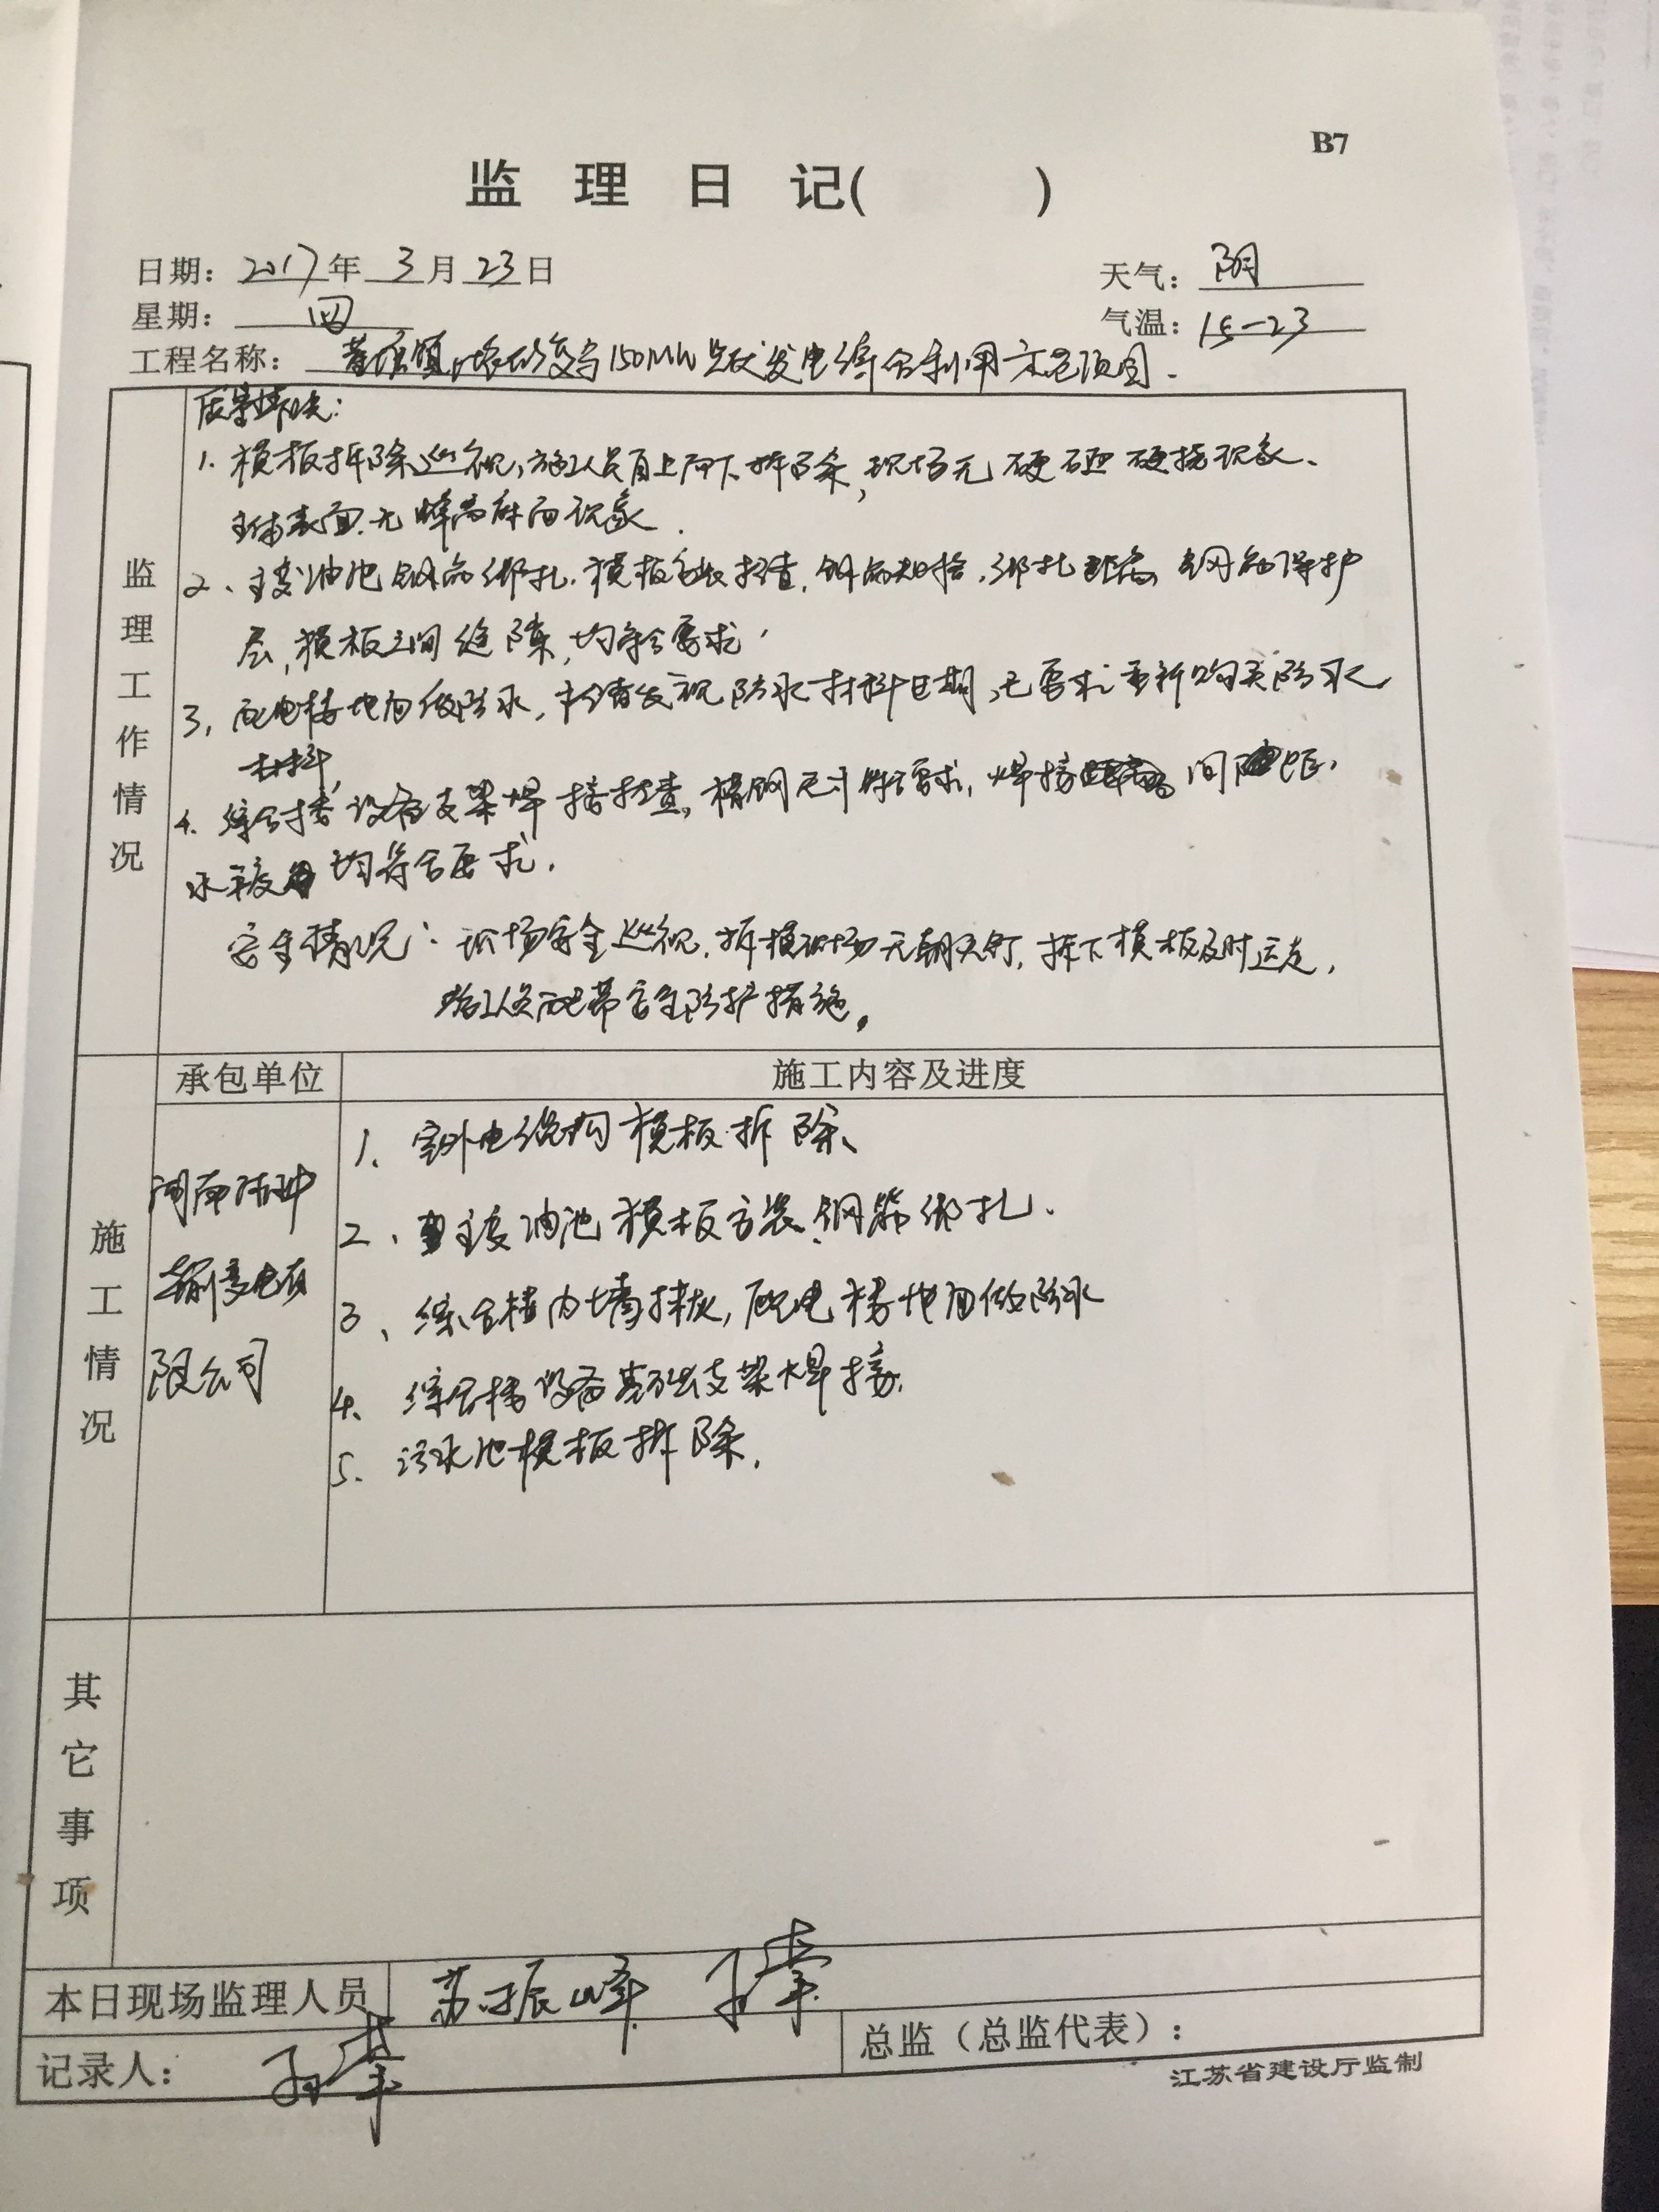 B7
监 理 日 记( )
日期: 2017年 3 月 23 日 天气: 阴
星期: 四 气温: 15-23
工程名称: 150MW光伏发电综合利用示范项目.
质量情况:
1. 模板拆除巡视,施工人员自上而下拆除,现场无硬砸硬撬现象、
主体表面无蜂窝麻面现象.
2、主变油池钢筋绑扎.模板安装检查,钢筋规格,绑扎 钢筋保护
层,模板之间缝隙,均符合要求,
3, 配电楼地面做防水, 发现防水材料日期,已要求重新购买防水
材料,
4. 综合楼设备支架焊接检查,槽钢尺寸符合要求,焊接 间距,
水平度 均符合要求.
安全情况:现场安全巡视.拆模现场无朝天钉,拆下模板及时运走,
施工人员配带安全防护措施。
监理工作情况
承包单位 施工内容及进度
1、室外电缆沟模板拆除、
2、主变油池模板安装、钢筋绑扎.
3、综合楼内墙抹灰,配电楼地面做防水
4、综合楼设备基础支架焊接.
5、污水池模板拆除.
河南
输变电有
限公司
施工情况
其它事项
本日现场监理人员 苏振峰
记录人: 总监(总监代表):
江苏省建设厅监制